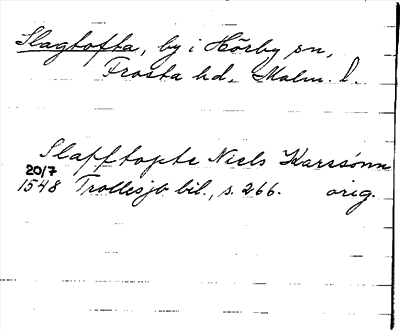 Slagtofta, by i Hörby sn,
Frosta hd. Malm. l.
Slafftopte Niels Karssønn
20/7
1548 Trollesjö bil., s. 266. orig.